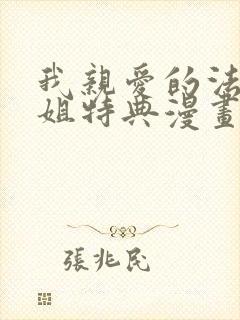 我親愛的法
姐特典漫畫
張兆民